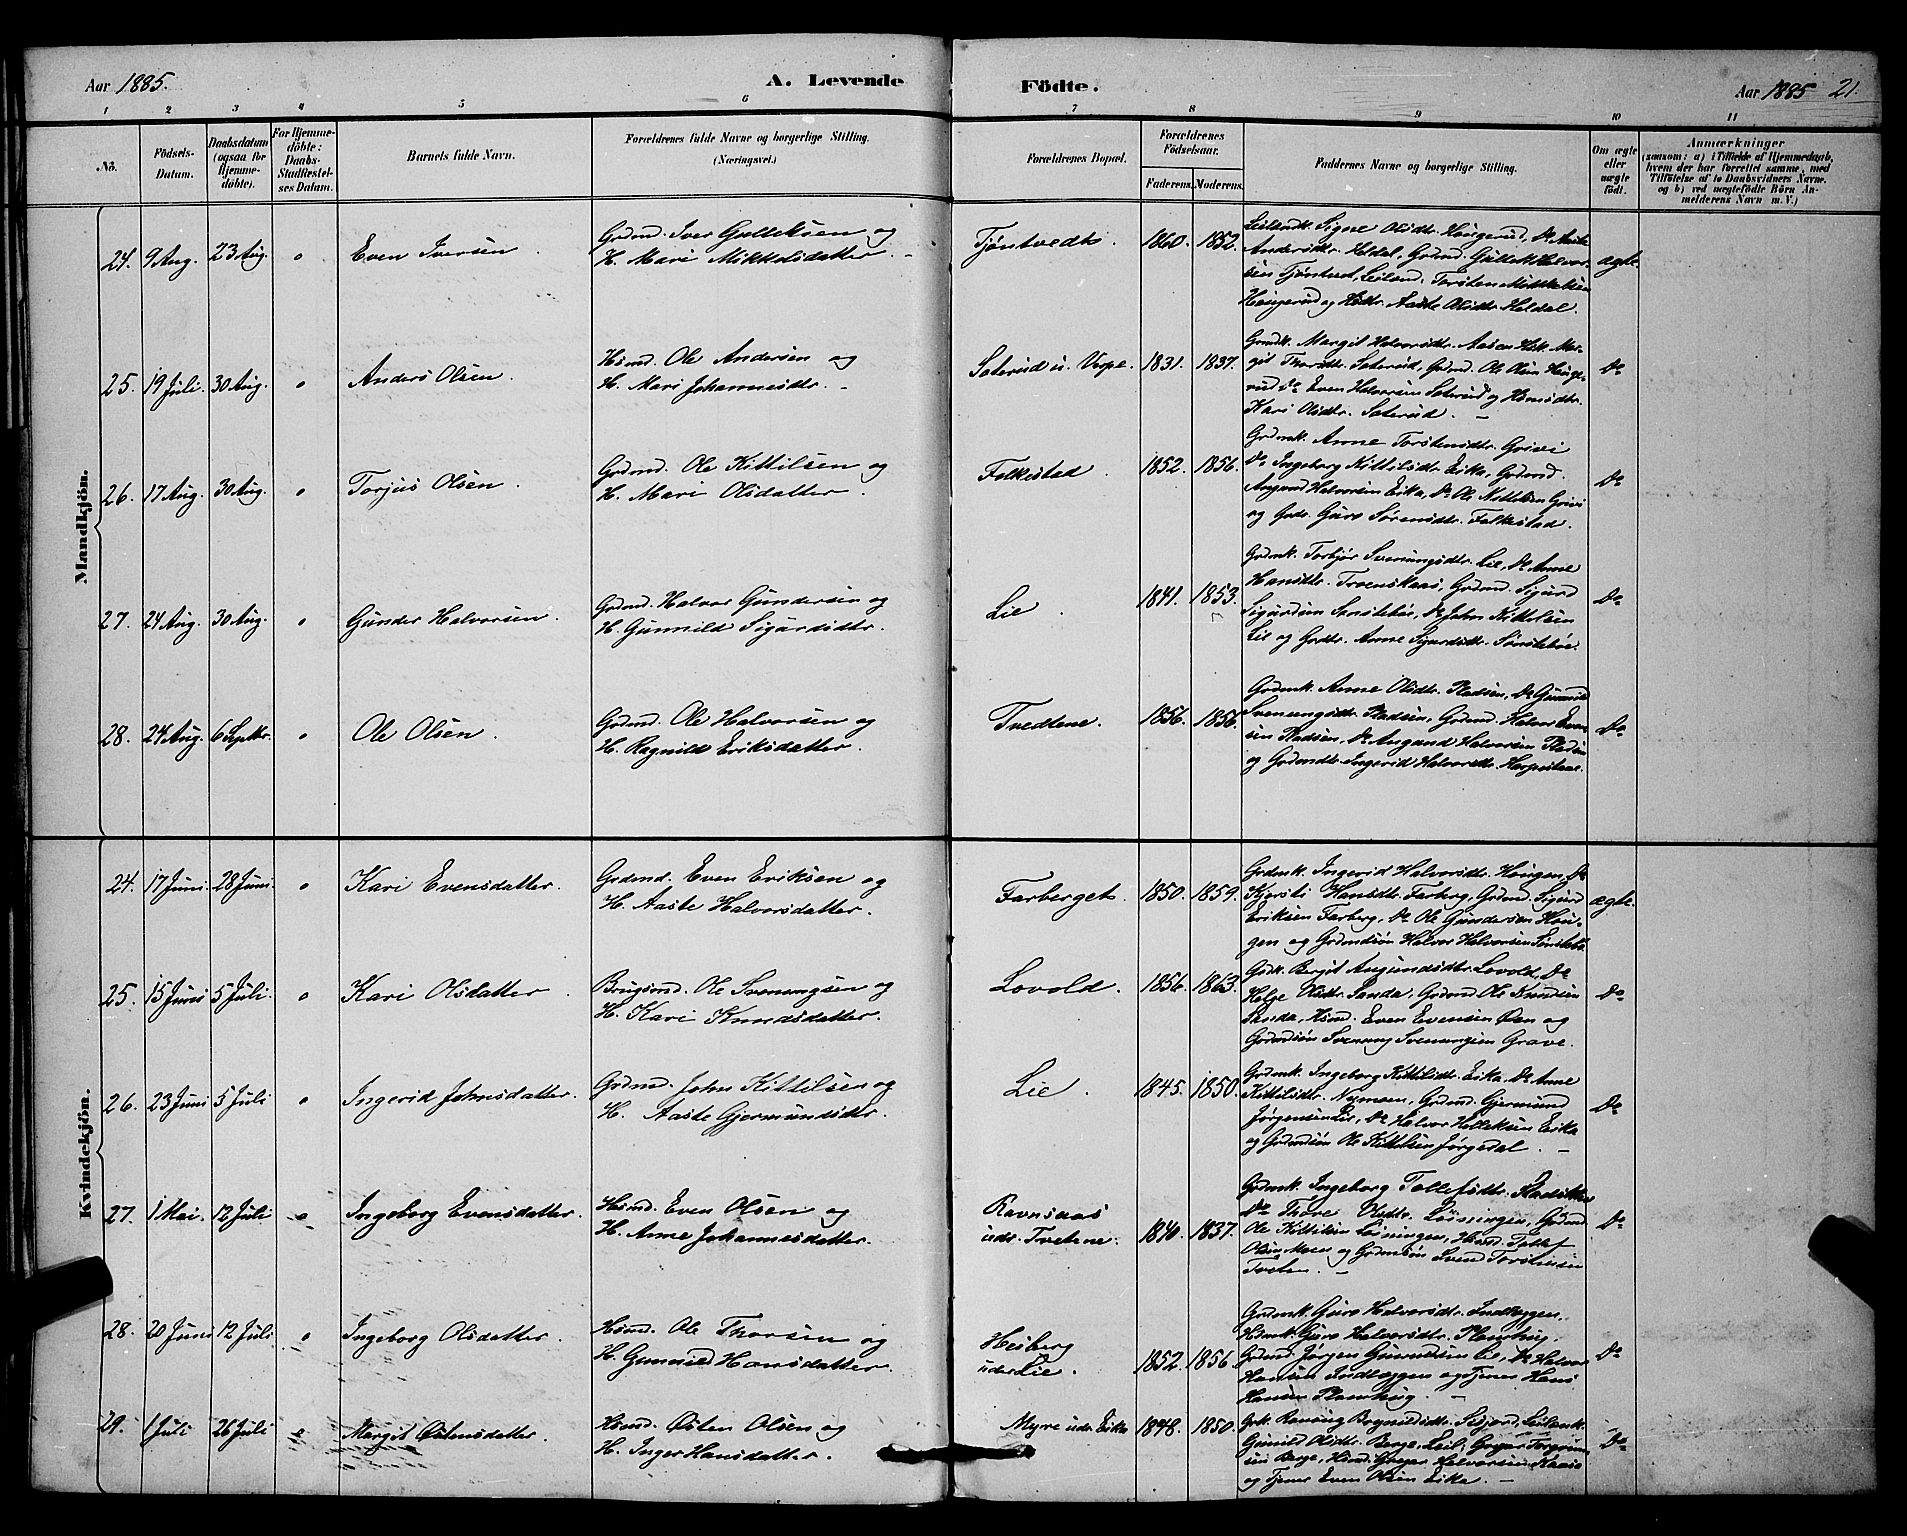 Aar 1885.
A. Levende
Födte.
Aar 1885 21.
1 2 3 4 5 6 7 8 9 10 11
No.
Födsels-
Datum.
Daabsdatum
(ogsaa for
Hjemme-
döbte).
For Hjemme-
döbte:
Daabs-
Stadfæstel-
ses Datum.
Barnets fulde Navn.
Forældrenes fulde Navne og borgerlige Stilling.
(Næringsvei.)
Forældrenes Bopæl.
Forældrenes
Födselsaar.
Faderens. Moderens.
Faddernes Navne og borgerlige Stilling.
Om ægte
eller
uægte
födt.
Anmærkninger
(saasom: a) i Tilfælde af Hjemmedaab,
hvem der har forrettet samme, med
Tilföielse af to Daabsvidners Navne.
og b) ved uægtefödte Börn An-
melderens Navn m. V.)
Mandkjön.
24. 9 Aug. 23 Aug. o Even Iversen
Grdmd. Iver Gulleksen og
H. Mari Mikkelsdatter.
Tjøntvedt. 1860. 1852.
Leilændk. Signe Olsdtr. Haugerud, Do Aaste
Andersdtr. Heldal, Grdmd. Gullek Halvor-
sen Tjøntvedt, Leilænd. Torsten Mikkelsen
Haugerud og Aaste Olsdtr. Heldal.
ægte
25. 19 Juli. 30 Aug. o Anders Olsen.
Hsmd. Ole Andersen og
H. Mari Johannesdtr. -
Saterud u. Vepe. 1831. 1837.
Grmdk. Margit Halvorsdtr. Aasen Hsk. Mar-
git Thorsdtr. Saterud, Grdmd. Ole Olsen Hauge-
rud Do Even Halvorsen Saterud og Hsmdsdtr.
Kari Olsdtr. Saterud. -
Do
26. 17 Aug. 30 Aug. o Torjus Olsen.
Grdmd. Ole Kittilsen og
H. Mari Olsdatter.
Folkestad. 1852. 1856.
Grdmk. Anne Torstensdtr. Grivi
Do Ingeborg Kittilsdtr. Eika, Grdmd.
Amund Halvorsen Eika, Do Ole Kittilsen Grivi
og Guro Sørensdtr. Folkestad.
Do
27. 24 Aug. 30 Aug. o Gunder Halvorsen.
Grdmd. Halvor Gundersen og
H. Gunnild Sigurdsdtr.
Lie. 1841. 1853.
Grdmk. Torbjør Sveinungsdtr. Lie, Do Anne
Hansdtr. Troenskaas, Grdmd. Sigurd
Sigurdsen Sønstebøe, Do John Kittilsen
Lie og Grdtr. Anne Sigurdsdtr. Sønstebøe.
Do
28. 24 Aug. 6 Septbr. o Ole Olsen.
Grdmd. Ole Halvorsen og
H. Ragnild Eriksdatter.
Tvedtene. 1856. 1856.
Grdmk. Anne Olsdtr. Pladsen, Do Gunnild
Svenungsdtr. Pladsen, Grdmd. Halvor Even-
sen Pladsen, Do Aamund Halvorsen Pladsen
og Grdmdtr. Ingerid Halvorsdtr.
Do
Kvindekjön.
24. 17 Juni. 28 Juni. o Kari Evensdatter.
Grdmd. Even Eriksen og
H. Aaste Halvorsdatter.
Farberget. 1850. 1859.
Grdmk. Ingerid Halvorsdtr. Haugen, Do
Kjersti Hansdtr. Farberg, Grdmd. Sigurd
Eriksen Farberg, Do Ole Gundersen Hau-
gen og Grdmdsøn Halvor Halvorsen Sønstebø.
ægte.
25. 15 Juni 5 Juli. o Kari Olsdatter.
Brugsmd. Ole Svenungsen og
H. Kari Knudsdatter.
Lovold. 1856. 1863.
Gdk. Bergit Aamundsdtr. Lovold, Do
Helge Olsdtr. Sanda, Grdmd. Ole Knudsen
Sanda, Hsmd. Even Evensen Øen og
Grdmdsøn Svenung Svenungsen Grave.
Do
26. 23 Juni 5 Juli o Ingerid Johnsdatter.
Grdmd. John Kittilsen og
H. Aaste Gjermundsdtr.
Lie. 1845. 1850.
Grdmk. Ingeborg Kittilsdtr. Eika, Do Anne
Kittilsdtr. Nymoen, Grdmd. Gjermund
Jørgensen Lie, Do Halvor Kittilsen Eika
og Grdmdsøn Ole Kittilsen Jørgedal. -
Do
27. 1 Mai. 12 Juli o Ingeborg Evensdatter.
Hsmd. Even Olsen og
H. Anne Johannesdatter.
Ravnsaas
udr. Tvetene. 1840. 1837.
Grdmk. Ingeborg Tollefsdtr.
Do Thore Olsdtr. Løiningen, Grdmd.
Ole Kittilsen Løiningen, Hsmd. Tollef
Olsen Moen og Grdmdsøn Svend Torstensen
Tveten. -
Do
28. 20 Juni 12 Juli o Ingeborg Olsdatter.
Hsmd. Ole Thorsen og
H. Gunnild Hansdatter.
Heiberg
under Lie. 1852. 1856.
Grdmk. Guro Halvorsdtr. Indlæggen,
Hsmk. Guro Halvorsdtr. Plankhug,
Grdmd. Jørgen Gunnulsen Lie, Do Halvor
Hansen Indlæggen og Tjener Hans
Hansen Plankhug. -
Do
29. 1 Juli 26 Juli o Margit Østensdatter.
Hsmd. Østen Olsen og
H. Inger Hansdatter.
Myre udr. Eika 1848. 1850.
Grk. Ranveig Bergnildsdtr. Seljord, Leilænk.
Gunild Olsdtr. Berge, Leil. Greger Torgrim-
sen Berge, Hsmd. Greger Halvorsen Kaasa
og Tjener Even Olsen Eika. -
Do